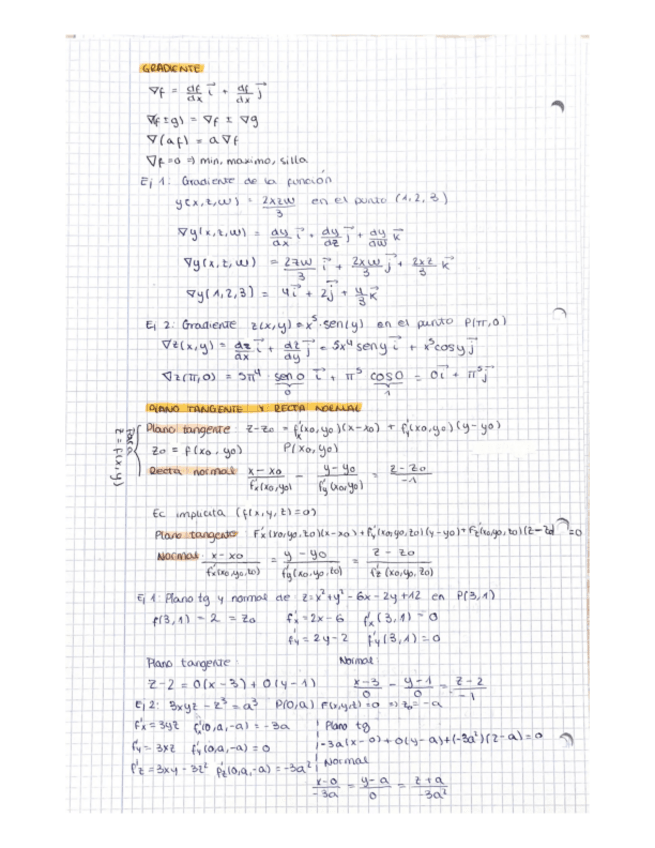 GRADIENTE
∇f = df/dx i⃗ + df/dx j⃗
∇(f ± g) = ∇f ± ∇g
∇(af) = a∇f
∇f = 0 ⇒ min, maximo, silla
Ej 1: Gradiente de la función
y(x,z,w) = 2xzw/3 en el punto (1,2,3)
∇y(x,z,w) = dy/dx i⃗ + dy/dz j⃗ + dy/dw k⃗
∇y(x,z,w) = 2zw/3 i⃗ + 2xw/3 j⃗ + 2xz/3 k⃗
∇y(1,2,3) = 4i⃗ + 2j⃗ + 4/3 k⃗
Ej 2: Gradiente z(x,y) = x⁵·sen(y) en el punto P(π,0)
∇z(x,y) = dz/dx i⃗ + dz/dy j⃗ = 5x⁴ sen y i⃗ + x⁵ cos y j⃗
∇z(π,0) = 5π⁴ · sen 0 i⃗ + π⁵ cos 0 = 0i⃗ + π⁵ j⃗
0 1
PLANO TANGENTE Y RECTA NORMAL
z = f(x,y)
Plano tangente z-z0 = f'x(x0,y0)(x-x0) + f'y(x0,y0)(y-y0)
z0 = f(x0,y0) P(x0,y0)
Recta normal x-x0/f'x(x0,y0) = y-y0/f'y(x0,y0) = z-z0/-1
Ec implicita (f(x,y,z)=0)
Plano tangente F'x(x0,y0,z0)(x-x0) + f'y(x0,y0,z0)(y-y0) + f'z(x0,y0,z0)(z-z0) = 0
Normal x-x0/f'x(x0,y0,z0) = y-y0/f'y(x0,y0,z0) = z-z0/f'z(x0,y0,z0)
Ej 1: Plano tg y normal de z=x²+y²-6x-2y+12 en P(3,1)
f(3,1) = 2 = z0 f'x = 2x-6 f'x(3,1) = 0
f'y = 2y-2 f'y(3,1) = 0
Plano tangente: Normal:
z-2 = 0(x-3) + 0(y-1) x-3/0 = y-1/0 = z-2/-1
Ej 2: 3xyz - z³ = a³ P(0,a) F(x,y,z)=0 ⇒ z0 = -a
f'x = 3yz f'x(0,a,-a) = -3a² Plano tg
f'y = 3xz f'y(0,a,-a) = 0 -3a(x-0)+0(y-a)+(-3a²)(z-a)=0
f'z = 3xy - 3z² f'z(0,a,-a) = -3a² Normal
x-0/-3a = y-a/0 = z+a/-3a²